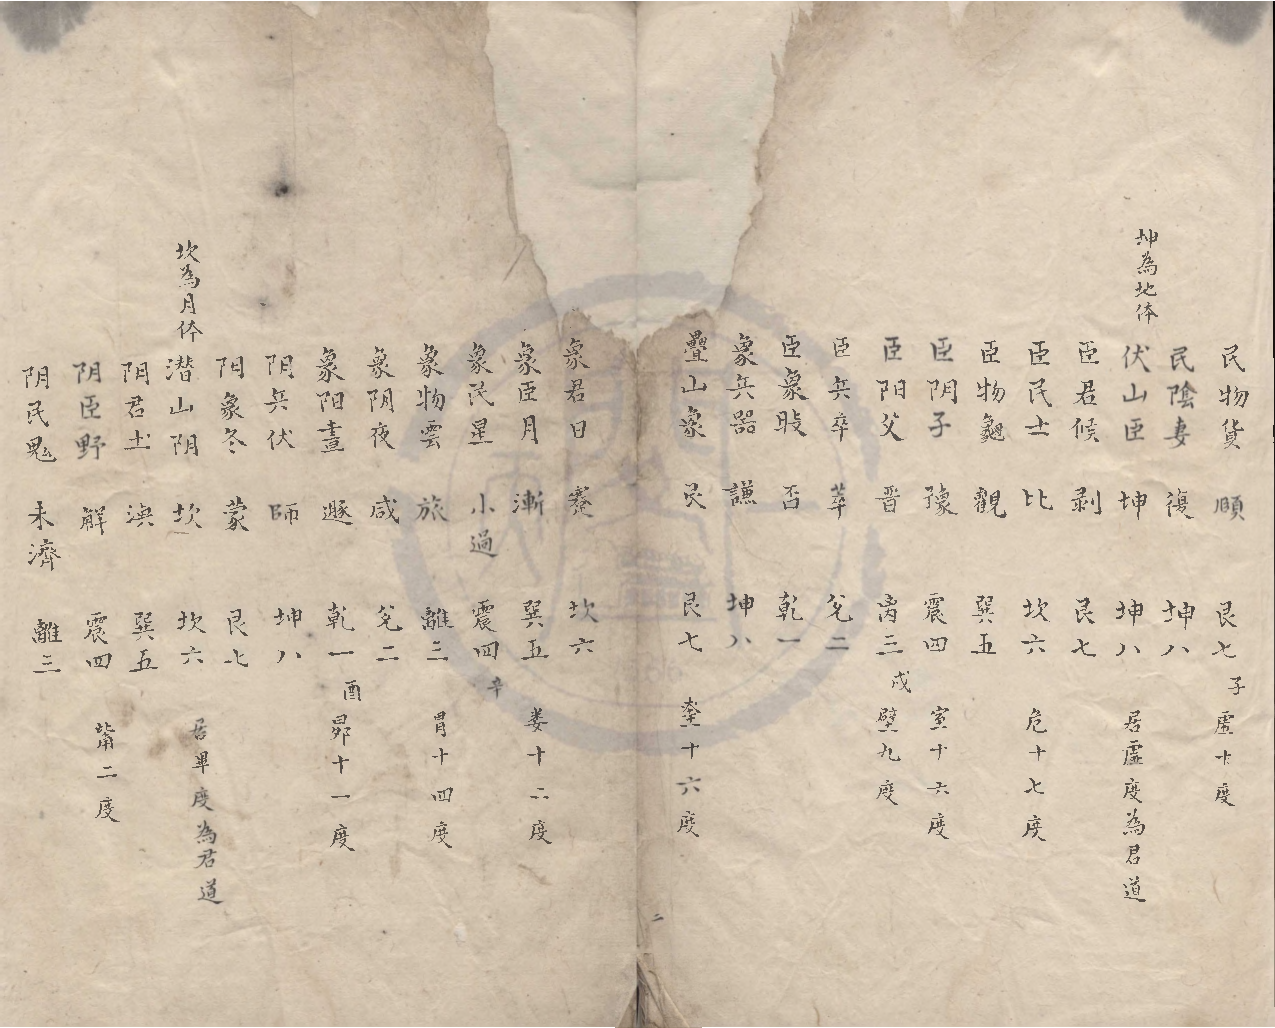 民物貨 頤 艮七 子虛十度
民陰妻 復 坤八
坤為地体 伏山臣 坤 坤八 居虛度為君道
臣君候 剥 艮七
臣民士 比 坎六 危十七度
臣物龜 觀 巽五
臣阴子 豫 震四 室十六度
臣阳父 晉 离三 戌壁九度
臣兵卒 萃 兌二
臣象 否 乾一
象兵器 謙 坤八
疊山象 艮 艮七 奎十六度
象君日 蹇 坎六
象臣月 漸 巽五 婁十二度
象民星 小過 震四 辛
象物雲 旅 離三 胃十四度
象阴夜 咸 兌二
象阳晝 遯 乾一 酉昴十一度
阴兵伏 師 坤八
阴象冬 蒙 艮七
坎為月体 潛山阴 坎 坎六 居畢度為君道
阴君土 渙 巽五
阴臣野 解 震四 觜二度
阴民鬼 未濟 離三
二